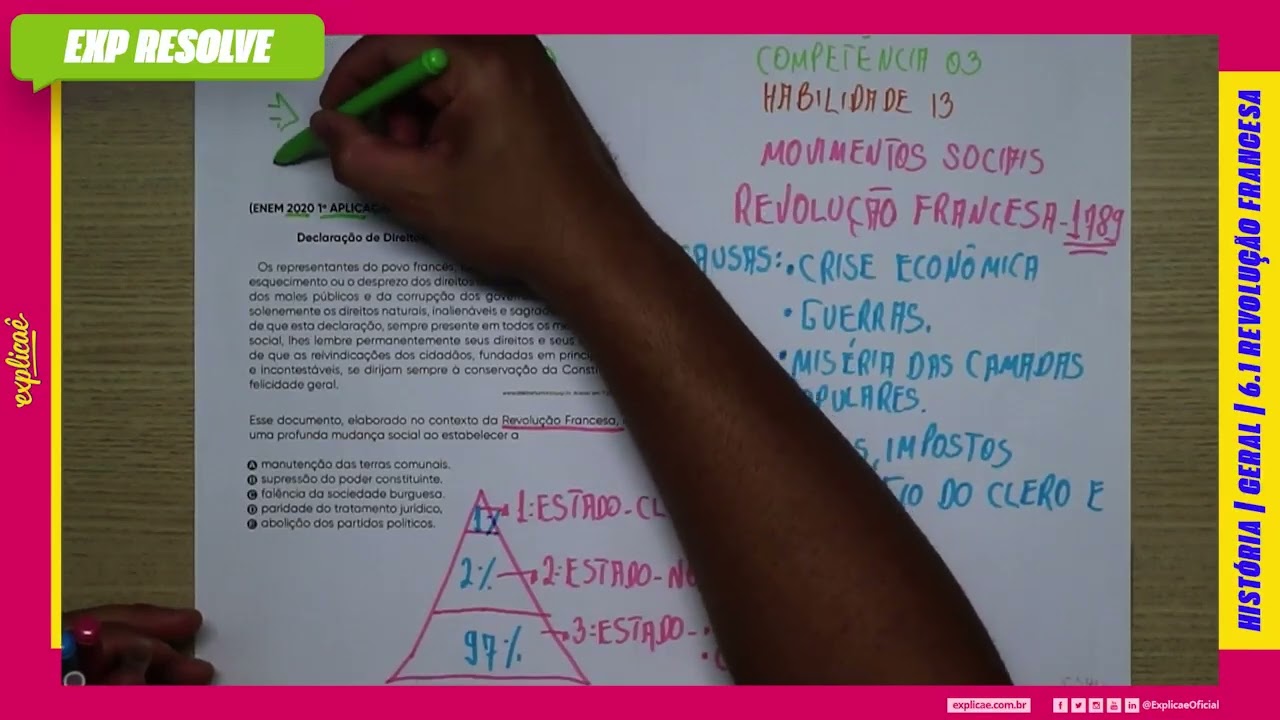 EXP RESOLVE
COMPETÊNCIA 03
HABILIDADE 13
MOVIMENTOS SOCIAIS
REVOLUÇÃO FRANCESA-1789
CAUSAS: • CRISE ECONÔMICA
• GUERRAS.
• MISÉRIA DAS CAMADAS
IMPOSTOS
DO CLERO E
(ENEM 2020 1ª
Declaração de
Os representantes do povo francês,
esquecimento ou o desprezo dos direitos
dos males públicos e da corrupção dos
solenemente os direitos naturais, inalienáveis e
de que esta declaração, sempre presente em todos os
social, lhes lembre permanentemente seus direitos e seus
de que as reivindicações dos cidadãos, fundadas em
e incontestáveis, se dirijam sempre à conservação da
felicidade geral.
Esse documento, elaborado no contexto da Revolução Francesa,
uma profunda mudança social ao estabelecer a
A manutenção das terras comunais.
B supressão do poder constituinte.
C falência da sociedade burguesa.
D paridade do tratamento jurídico,
E abolição dos partidos políticos.
1: ESTADO-
2% 2: ESTADO-
97% 3: ESTADO-
explicaê
HISTÓRIA | GERAL | 6.1 REVOLUÇÃO FRANCESA
explicae.com.br @ExplicaeOficial